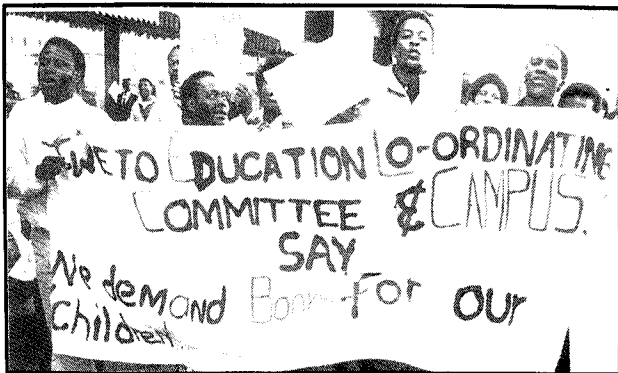 WETO EDUCATION CO-ORDINATING
COMMITTEE & CAMPUS.
SAY
We demand For our
Children